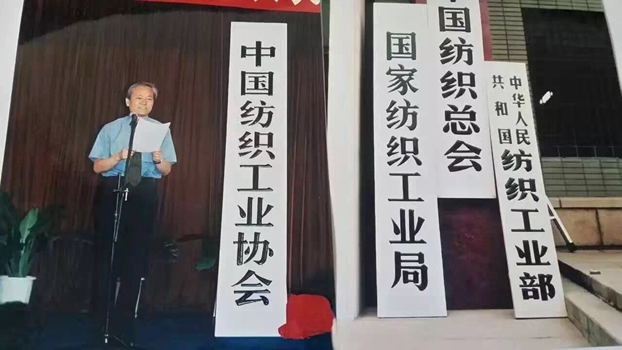 中国纺织工业协会
国家纺织工业局
中国纺织总会
中华人民
共和国
纺织工业部